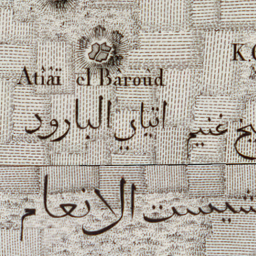 Atïäï el Bâroùd K.
اتياي البارود
يخ غنيم
شيست الانعام